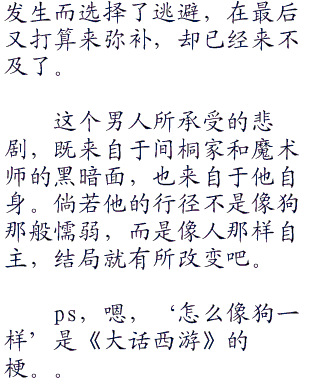 发生而选择了逃避，在最后
又打算来弥补，却已经来不
及了。
这个男人所承受的悲
剧，既来自于间桐家和魔术
师的黑暗面，也来自于他自
身。倘若他的行径不是像狗
那般懦弱，而是像人那样自
主，结局就有所改变吧。
ps，嗯，‘怎么像狗一
样’是《大话西游》的
梗。。